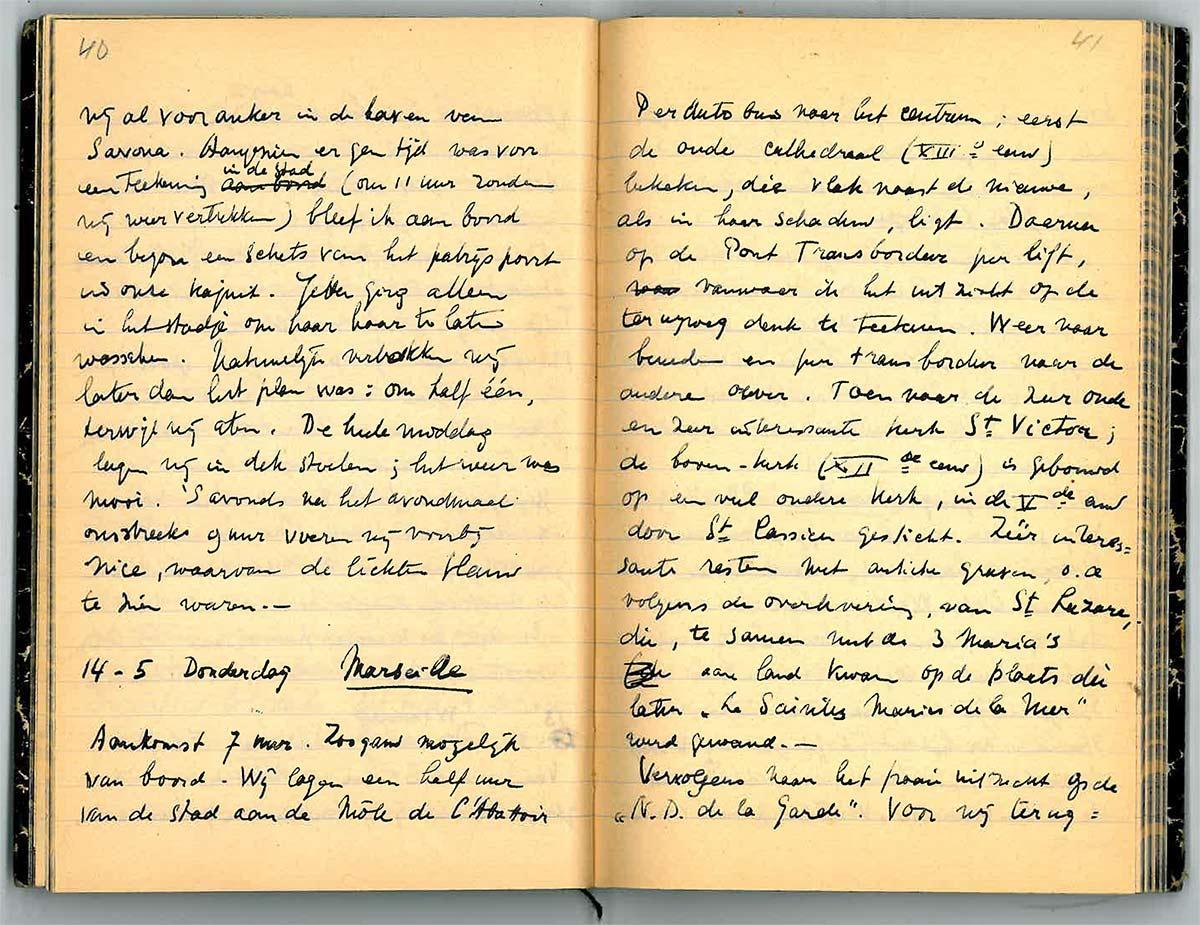 40
wij al voor anker in de haven van
Savona. Aangezien er geen tijd was voor
in de stad
een teekening aan boord (om 11 uur zouden
wij weer vertrekken) bleef ik aan boord
en begon een schets van het patrijspoort
in onze kajuit. Jetta ging alleen
in het stadje om haar haar te laten
wasschen. Natuurlijk vertrokken wij
later dan het plan was: om half één,
terwijl wij aten. De heele middag
lagen wij in dek stoelen; het weer was
mooi. 's Avonds na het avondmaal
omstreeks 9 uur voeren wij voorbij
Nice, waarvan de lichten flauw
te zien waren.—
14-5 Donderdag Marseille
Aankomst 7 uur. Zoo gauw mogelijk
van boord - Wij lagen een half uur
van de stad aan de Môle de l'Abattoir
41
Per autobus naar het centrum; eerst
de oude cathedraal (XIII e eeuw)
bekeken, die vlak naast de nieuwe,
als in haar schaduw, ligt. Daarna
op de Pont Transbordeur per lift,
vanwaar ik het uitzicht op de
terugweg denk te teekenen. Weer naar
beneden en per transbordeur naar de
andere oever. Toen naar de zeer oude
en zeer interessante kerk St Victor;
de boven-kerk (XII de eeuw) is gebouwd
op een veel oudere kerk, in de V de eeuw
door St Cassien gesticht. Zéér interes=
sante resten met antieke graven, o.a
volgens de overlevering, van St Lazare,
die, te samen met de 3 Maria's
aan land kwam op de plaats die
later „Le Saintes Maries de la Mer"
werd genaamd.—
Vervolgens naar het fraaie uitzicht op de
„N. D. de la Garde". Voor wij terug=